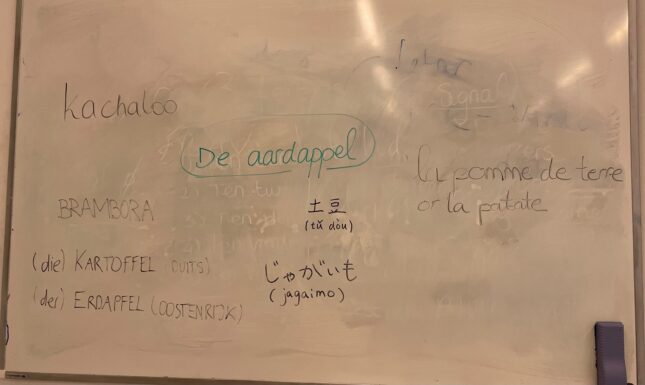 kachaloo
De aardappel
la pomme de terre
or la patate
BRAMBORA
土豆
(tǔ dòu)
(die) KARTOFFEL (DUITS)
じゃがいも
(jagaimo)
(der) ERDAPFEL (OOSTENRIJK)
Signal